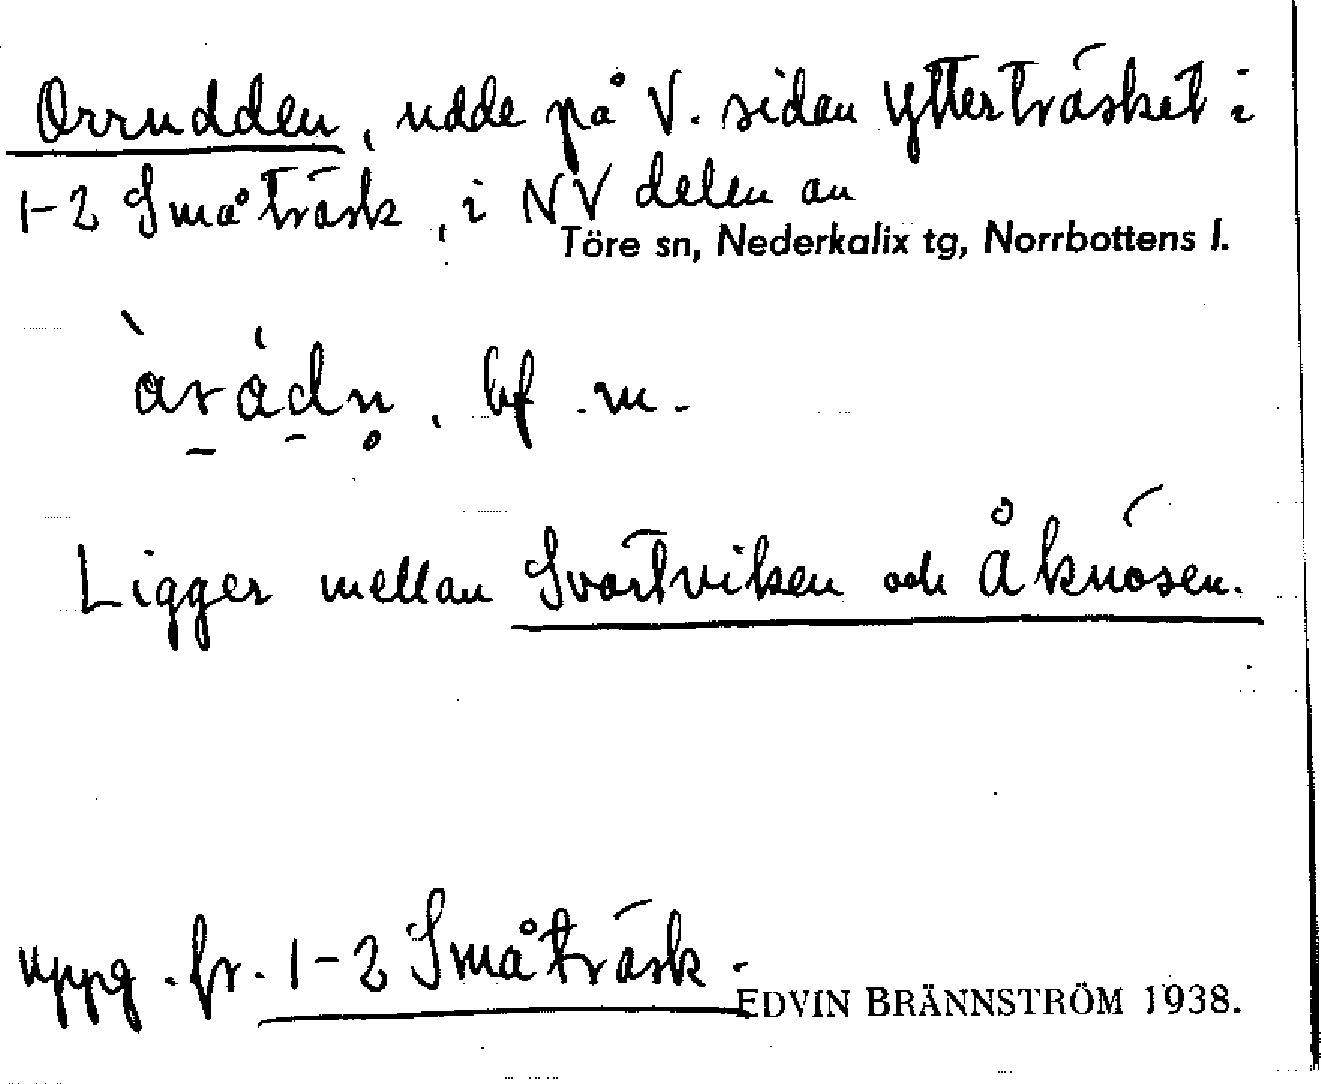 Orrudden, udde på V. sidan Ytterträsket i
1-2 Småträsk, i NV delen av
Töre sn, Nederkalix tg, Norrbottens l.
bf. m.
Ligger mellan Svartviken och Åknösen.
uppg. fr. 1-2 Småträsk.
EDVIN BRÄNNSTRÖM 1938.